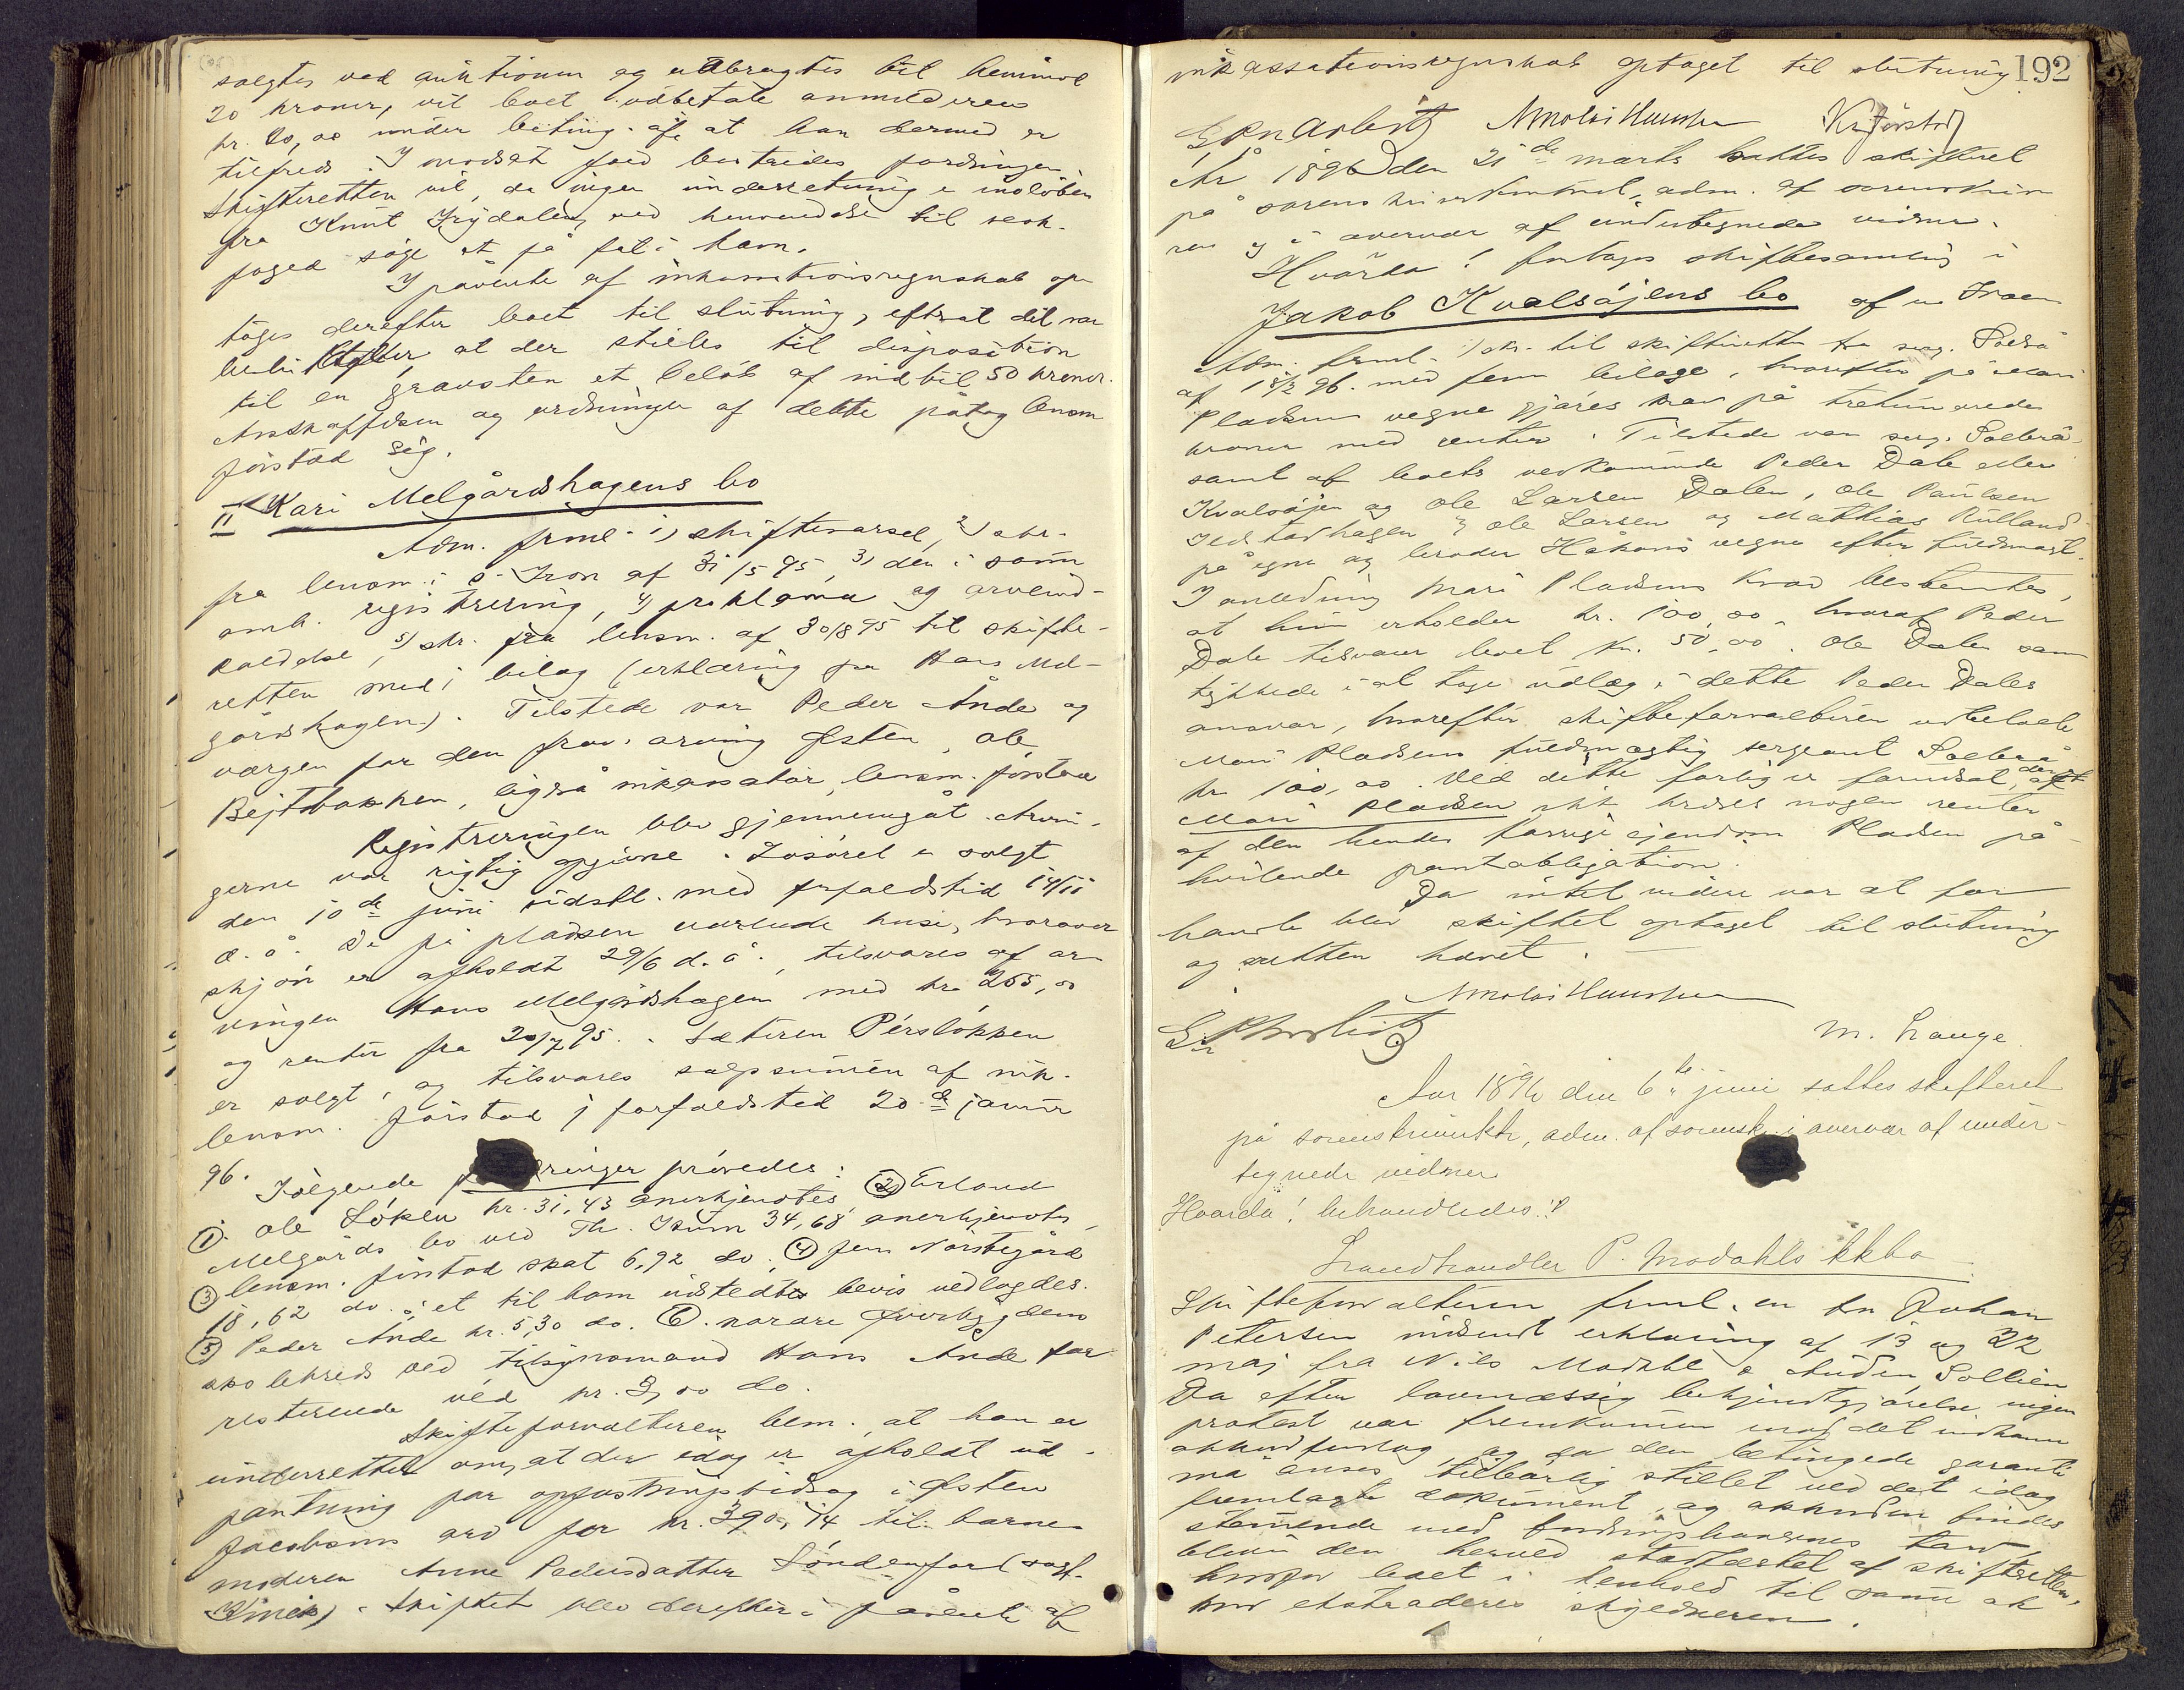 solgtes ved auktionen og udbragtes til henimod
20 kroner, vil boet udbetale anmelderen
kr. 20,00 under beting. af, at han dermed er
tilfreds. I modsat fald bestrides fordringen.
Skifteretten vil, da ingen underretning er indløben
fra Knut Frydalen, ved henvendelse til
foged søge at få fat i ham.
I påvente af inkassationsregnskab op-
toges derefter boet til slutning, efterat det var
besluttet, at der stilles til disposition
til en gravsten et beløb af indtil 50 kroner.
Anskaffelsen og ordningen af dette påtog lensm.
Jørstad sig.
II Kari Melgårdshagens bo
Adm. freml. 1) skiftevarsel, 2) skr.
fra lensm. i s. Fron af 31/5 95, 3) den i samme
omh. registrering, 4) proklama og arveind-
kaldelse, 5) skr. fra lensm. af 30/8 95 til skifte-
retten med 1 bilag (erklæring fra Hans Mel-
gårdshagen). Tilstede var Peder Ånde og
værgen for den frav. arving Østen, Ole
Bejtbakken, ligså inkassator, lensm. Jørstad
Registreringen blev gjennemgåt. Arvin-
gerne var rigtig opgivne. Løsøret er solgt
den 10de juni sidstl. med forfaldstid 14/11
d. å. De på pladsen værende huse, hvorover
skjøn er afholdt 29/6 d. å., tilsvares af ar-
vingen Hans Melgårdshagen med kr. 265,00
og renter fra 20/7 95. Sæteren Persløkken
er solgt, og tilsvares salgssummen af ink.
lensm. Jørstad, forfaldstid 20de januar
96.
Følgende fordringer prøvedes:
1. Ole Løken kr. 31,43 anerkjendtes, 2 Erland
Melgårds bo ved Th. Isum 34,68 anerkjendtes,
3 lensm. Jørstad skat 6,92 do. 4 Jens Nørstegård
18,62 do.; et til ham udstedte bevis vedlagdes.
5 Peder Ånde kr. 5,30 do. 6. nordre
skolekreds ved tilsynsmand Hans Ånde for
resterende ved kr. 3,00 do.
Skifteforvalteren bem. at han er
underrettet om, at der idag er afholdt ud-
pantning for opfostringsbidrag i Østen
Jacobsens arv for kr. 390,14 til barne-
moderen Anne Pedersdatter
. Skiftet blev derefter i påvente af
192
inkassationsregnskab optaget til slutning
Nicolai Hansen K. Jørstad
År 1896 den 21de marts sattes skifteret
på sorenskriverkontoret, adm. af sorenskrive-
ren og i overvær af undertegnede vidner.
Hvorda! foretoges skiftesamling i
Jakob Kvalsøjens bo af n. Fron
Adm. freml. 1) skr. til skifteretten fra serg. Solbrå
af 18/3 96. med fem bilage, hvorefter på Mari
Pladsens vegne gjøres krav på trehundrede
kroner med renter. Tilstede var serg. Solbrå
samt af boets vedkommende Peder Dale eller
Kvalsøjen og Ole Larsen Dalen, Ole Paulsen
og Ole Larsen og Mathias Rulland
på egne og broder Håkons vegne efter fuldmagt.
I anledning Mari Pladsens krav bestemtes,
at hun erholder kr. 100,00, hvoraf Peder
Dale tilsvarer boet kr. 50,00. Ole Dalen sam-
tykkede i at tage udlæg i dette Peder Dales
ansvar, hvorefter skifteforvalteren udbetalte
Mari Pladsens fuldmægtig sergeant Solbrå
kr. 100,00. Ved dette forlig er forudsat, at der af
Mari Pladsen ikke kræves nogen renter
af den hendes forrige ejendom Pladsen på-
hvilende pantobligation.
Da intet videre var at for-
handle blev skiftet optaget til slutning
og retten hævet.
Nicolai Hansen
M. Lange
Aar 1896 den 6te juni sattes skifteret
på sorenskriverktr, adm. af sorensk. i overvær af under-
tegnede vidner
Hvorda! behandledes:
Landhandler P. Modahls kkbo
Skifteforvalteren freml. en fra Johan
Petersen indsendt erklæring af 13 og 22
maj fra Nils Modahl & Auden Sollien
Da efter lovmæssig bekjendtgjørelse ingen
protest var fremkommen mod det indkomne
akkordforslag og da den betingede garanti
må anses tilbørlig stillet ved det idag
fremlagte dokument, og akkorden findes
stemmende med fordringshavernes tarv,
blev den herved stadfæstet af skifteretten,
hvorfor boet i henhold til samme ak-
kord ekstraderes skyldneren.